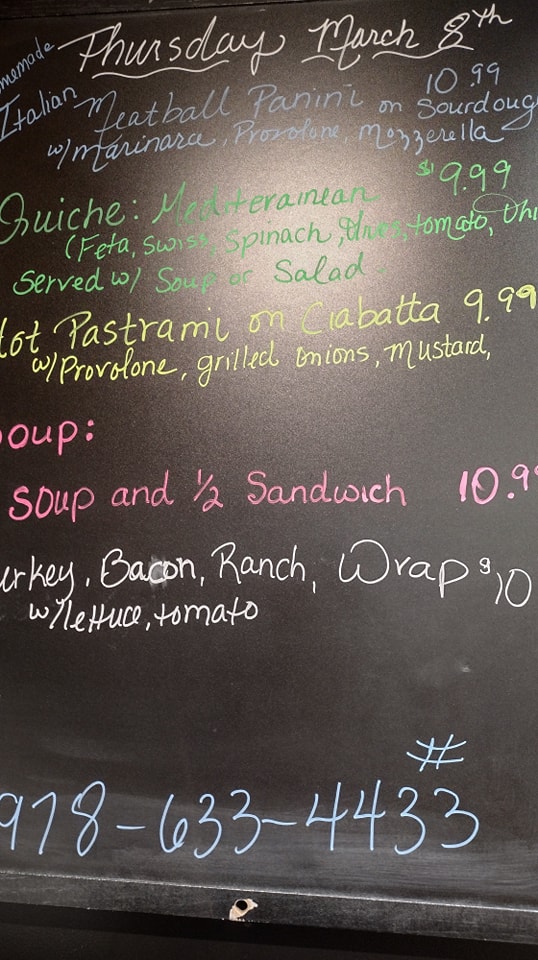 Thursday March 8th
memade
Italian Meatball Panini 10.99
on Sourdoug
w/marinara, Provolone, Mozzerella
Quiche: Mediterainean $9.99
(Feta, Swiss, Spinach, Olives, tomato, Oni
Served w/ Soup or Salad
ot Pastrami on Ciabatta 9.99
w/Provolone, grilled onions, Mustard,
oup:
Soup and 1/2 Sandwich 10.99
urkey, Bacon, Ranch, Wrap $10
w/lettuce, tomato
#
978-633-4433